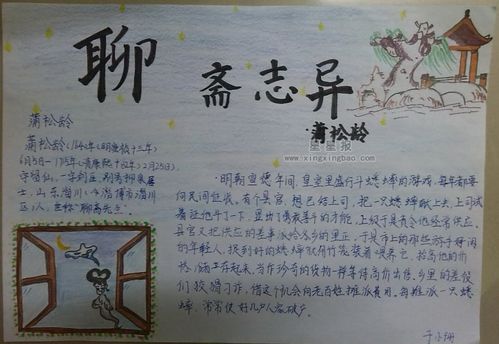 聊斋志异
·蒲松龄
星星报
www.xingxingbao.com
蒲松龄
蒲松龄(1640年(明崇祯十三年)
6月5日—1715年(清康熙五十四年)2月25日),
字留仙,一字剑臣,别号柳泉居
士,山东淄川(今淄博市淄川
区)人,世称"聊斋先生"。
明朝宣德年间,皇室里盛行斗蟋蟀的游戏,每年都要
向民间征收。有个县官,想巴结上司,把一只蟋蟀献上去,上司试
着让他斗了一下,显出了勇敢善斗的才能,上级于是责令他经常供应。
县官又把供应的差事派给各乡的里正。于是市上的那些游手好闲
的年轻人,捉到好的蟋蟀就用竹笼装着喂养它,抬高他的价
格;储存起来,当作珍奇的货物一样等待高价出售。乡里的差役
们狡猾刁诈,借这个机会向老百姓摊派费用。每摊派一只蟋
蟀,常常使好几户人家破产。
于小珊